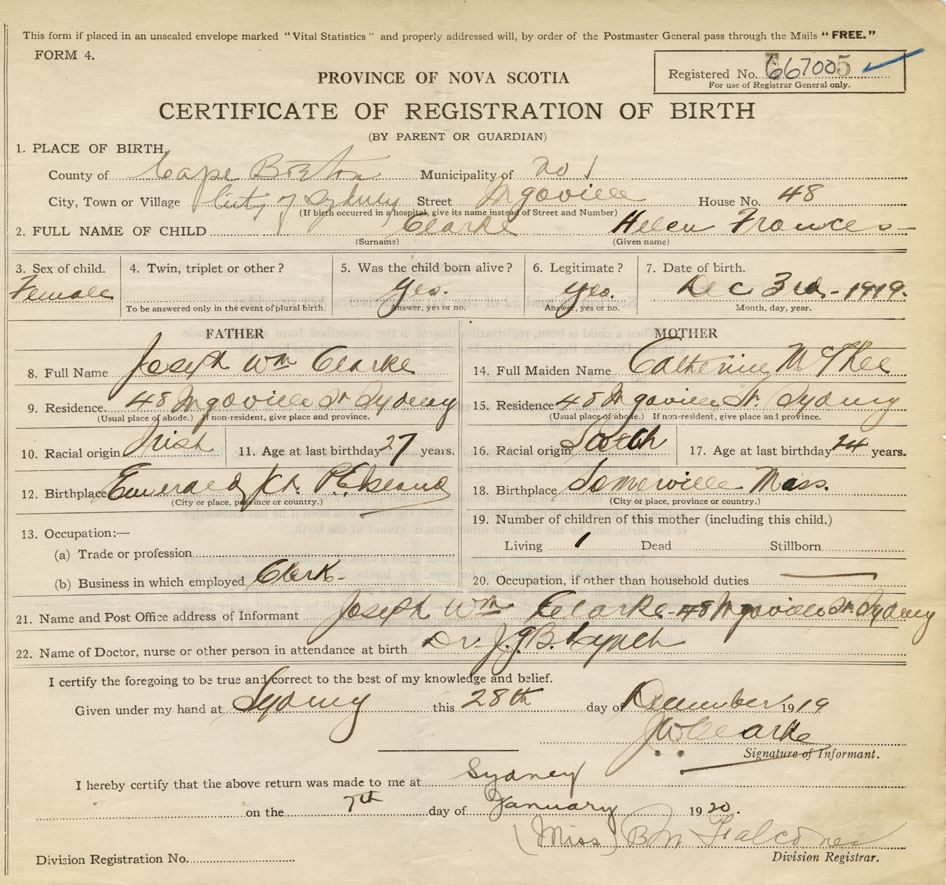 This form if placed in an unsealed envelope marked "Vital Statistics" and properly addressed will, by order of the Postmaster General pass through the Mails "FREE."
FORM 4.
Registered No. 667005
For use of Registrar General only.
PROVINCE OF NOVA SCOTIA
CERTIFICATE OF REGISTRATION OF BIRTH
(BY PARENT OR GUARDIAN)
1. PLACE OF BIRTH,
County of Cape Breton Municipality of no 1
City, Town or Village City of Sydney Street Ingoville House No. 48
(If birth occurred in a hospital, give its name instead of Street and Number)
2. FULL NAME OF CHILD Clarke Helen Frances
(Surname) (Given name)
3. Sex of child. 4. Twin, triplet or other? 5. Was the child born alive? 6. Legitimate? 7. Date of birth.
Female yes. yes. Dec 3rd - 1919.
To be answered only in the event of plural birth. Answer, yes or no. Answer, yes or no. Month, day, year.
FATHER MOTHER
8. Full Name Joseph Wm Clarke 14. Full Maiden Name Catherine McPhee
9. Residence. 48 Ingoville St Sydney 15. Residence 48 Ingoville St. Sydney
(Usual place of abode.) If non-resident, give place and province. (Usual place of abode.) If non-resident, give place and province.
10. Racial origin Irish 11. Age at last birthday 27 years. 16. Racial origin Scotch 17. Age at last birthday 24 years.
12. Birthplace Emerald P.E. Island 18. Birthplace Somerville Mass.
(City or place, province or country.) (City or place, province or country.)
13. Occupation:— 19. Number of children of this mother (including this child.)
(a) Trade or profession Living 1 Dead Stillborn
(b) Business in which employed Clerk- 20. Occupation, if other than household duties
21. Name and Post Office address of Informant Joseph Wm Clarke - 48 Ingoville St Sydney
22. Name of Doctor, nurse or other person in attendance at birth Dr. J.G.B. Lynch
I certify the foregoing to be true and correct to the best of my knowledge and belief.
Given under my hand at Sydney this 28th day of December 1919
JW Clarke
Signature of Informant.
I hereby certify that the above return was made to me at Sydney
on the 7th day of January 1920.
(Miss) B M Falconer
Division Registration No. Division Registrar.